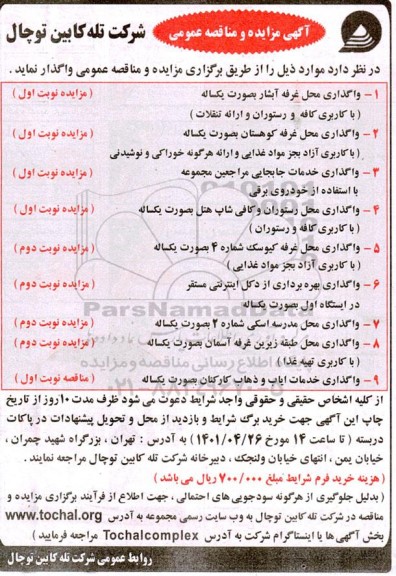 آگهی مزایده و مناقصه عمومی
شرکت تله کابین توچال
در نظر دارد موارد ذیل را از طریق برگزاری مزایده و مناقصه عمومی واگذار نماید .
۱ - واگذاری محل غرفه آبشار بصورت یکساله ( مزایده نوبت اول )
( با کاربری کافه و رستوران و ارائه تنقلات )
۲ - واگذاری محل غرفه کوهستان بصورت یکساله ( مزایده نوبت اول )
( با کاربری آزاد بجز مواد غذایی و ارائه هرگونه خوراکی و نوشیدنی
۳ - واگذاری خدمات جابجایی مراجعین مجموعه ( مزایده نوبت اول )
با استفاده از خودروی برقی
۴ - واگذاری محل رستوران و کافی شاپ هتل بصورت یکساله ( مزایده نوبت اول )
( با کاربری کافه و رستوران )
۵ - واگذاری محل غرفه کیوسک شماره ۴ بصورت یکساله ( مزایده نوبت دوم )
( با کاربری آزاد بجز مواد غذایی )
۶ - واگذاری بهره برداری از دکل اینترنتی مستقر ( مزایده نوبت دوم )
در ایستگاه اول بصورت یکساله
۷ - واگذاری محل مدرسه اسکی شماره ۲ بصورت یکساله ( مزایده نوبت دوم )
۸ - واگذاری محل طبقه زیرین غرفه آسمان بصورت یکساله ( مزایده نوبت دوم )
( با کاربری تهیه غذا )
۹ - واگذاری خدمات ایاب و ذهاب کارکنان بصورت یکساله ( مناقصه نوبت اول )
از کلیه اشخاص حقیقی و حقوقی واجد شرایط دعوت می شود ظرف مدت ۱۰ روز از تاریخ
چاپ این آگهی جهت خرید برگ شرایط و بازدید از محل و تحویل پیشنهادات در پاکات
دربسته ( تا ساعت ۱۴ مورخ ۱۴۰۱/۰۴/۲۶ ) به آدرس : تهران ، بزرگراه شهید چمران ،
خیابان یمن ، انتهای خیابان ولنجک ، دبیرخانه شرکت تله کابین توچال مراجعه نمایند .
( هزینه خرید فرم شرایط مبلغ ۷۰۰/۰۰۰ ریال می باشد )
( بدلیل جلوگیری از هرگونه سودجویی های احتمالی ، جهت اطلاع از فرآیند برگزاری مزایده و
مناقصه در شرکت تله کابین توچال به وب سایت رسمی مجموعه به آدرس www.tochal.org
بخش آگهی ها یا اینستاگرام شرکت به آدرس Tochalcomplex مراجعه فرمایید )
روابط عمومی شرکت تله کابین توچال
ParsNamadData